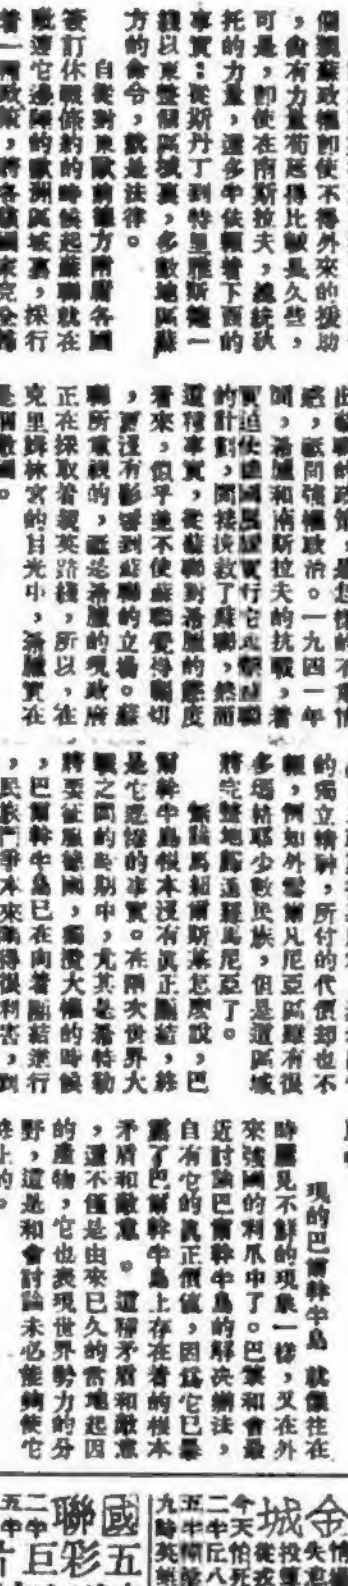 個親蘇政權即使不得外來的援助
，尚有力量苟延得比較長久些，
可是，即使在南斯拉夫，總統狄
托的力量，還多半依賴着下面的
事實：從斯丹丁到特里雅斯德一
綫以東整個區域裏，多數地區蘇
方的命令，就是法律。
自從對東歐前敵方附庸各國
簽訂休戰條約的時候起蘇聯就在
它邊陲的歐洲區域裏，採行
着一種政策，將各該國家完全
出蘇聯的政策，是怎樣的不動情
感，祇問強權政治。一九四一年
間，希臘和南斯拉夫的抗戰，着
實迫使德國展緩實行它攻擊蘇聯
的計劃，間接挽救了蘇聯，然而
這種事實，從蘇聯對希臘的態度
看來，似乎並不使蘇聯覺得關切
，更沒有影響到蘇聯的立場。蘇
聯所重視的，祇是希臘的現政府
正在採取着親英路綫，所以，在
克里姆林宮的目光中，希臘實在
是個敵國。
的獨立精神，所付的代價却也不
輕，例如外雪爾凡尼亞區雖有很
多瑪格耶少數民族，但是這區域
將完整地歸還羅馬尼亞了。
無論馬爾斯基怎麼說，巴
爾幹半島根本沒有真正團結，終
是它悲慘的事實。在兩次世界大
戰之間的時期中，尤其是希特勒
將要征服德國，獨攬大權的時候
，巴爾幹半島已在向着團結進行
，民族鬥爭本來鬧得很利害，到
現的巴爾幹半島 就像往在
時屢見不鮮的現象一樣，又在外
來強國的利爪中了。巴黎和會最
近討論巴爾幹半島的解決辦法，
自有它的真正價值，因爲它已暴
露了巴爾幹半島上存在着的根本
矛盾和敵意。這種矛盾和敵意
，還不僅是由來已久的當地起因
的產物，它也表現世界勢力的分
野，這是和會討論未必能夠使它
終止的。
金
城
今天怕死
國五
聯彩
二中巨